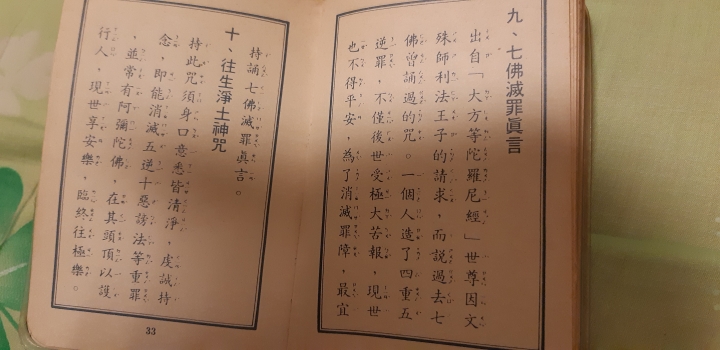 九、七佛滅罪眞言
出自「大方等陀羅尼經」世尊因文
殊師利法王子的請求，而說過去七
佛曾誦過的咒。一個人造了四重五
逆罪，不僅後世受極大苦報，現世
也不得平安，為了消滅罪障，最宜
持誦七佛滅罪眞言。
十、往生淨土神咒
持此咒須身口意悉皆清淨，虔誠持
念，即能消滅五逆十惡謗法等重罪
，並常有阿彌陀佛，在其頭頂以護
行人，現世享安樂，臨終往極樂。
33